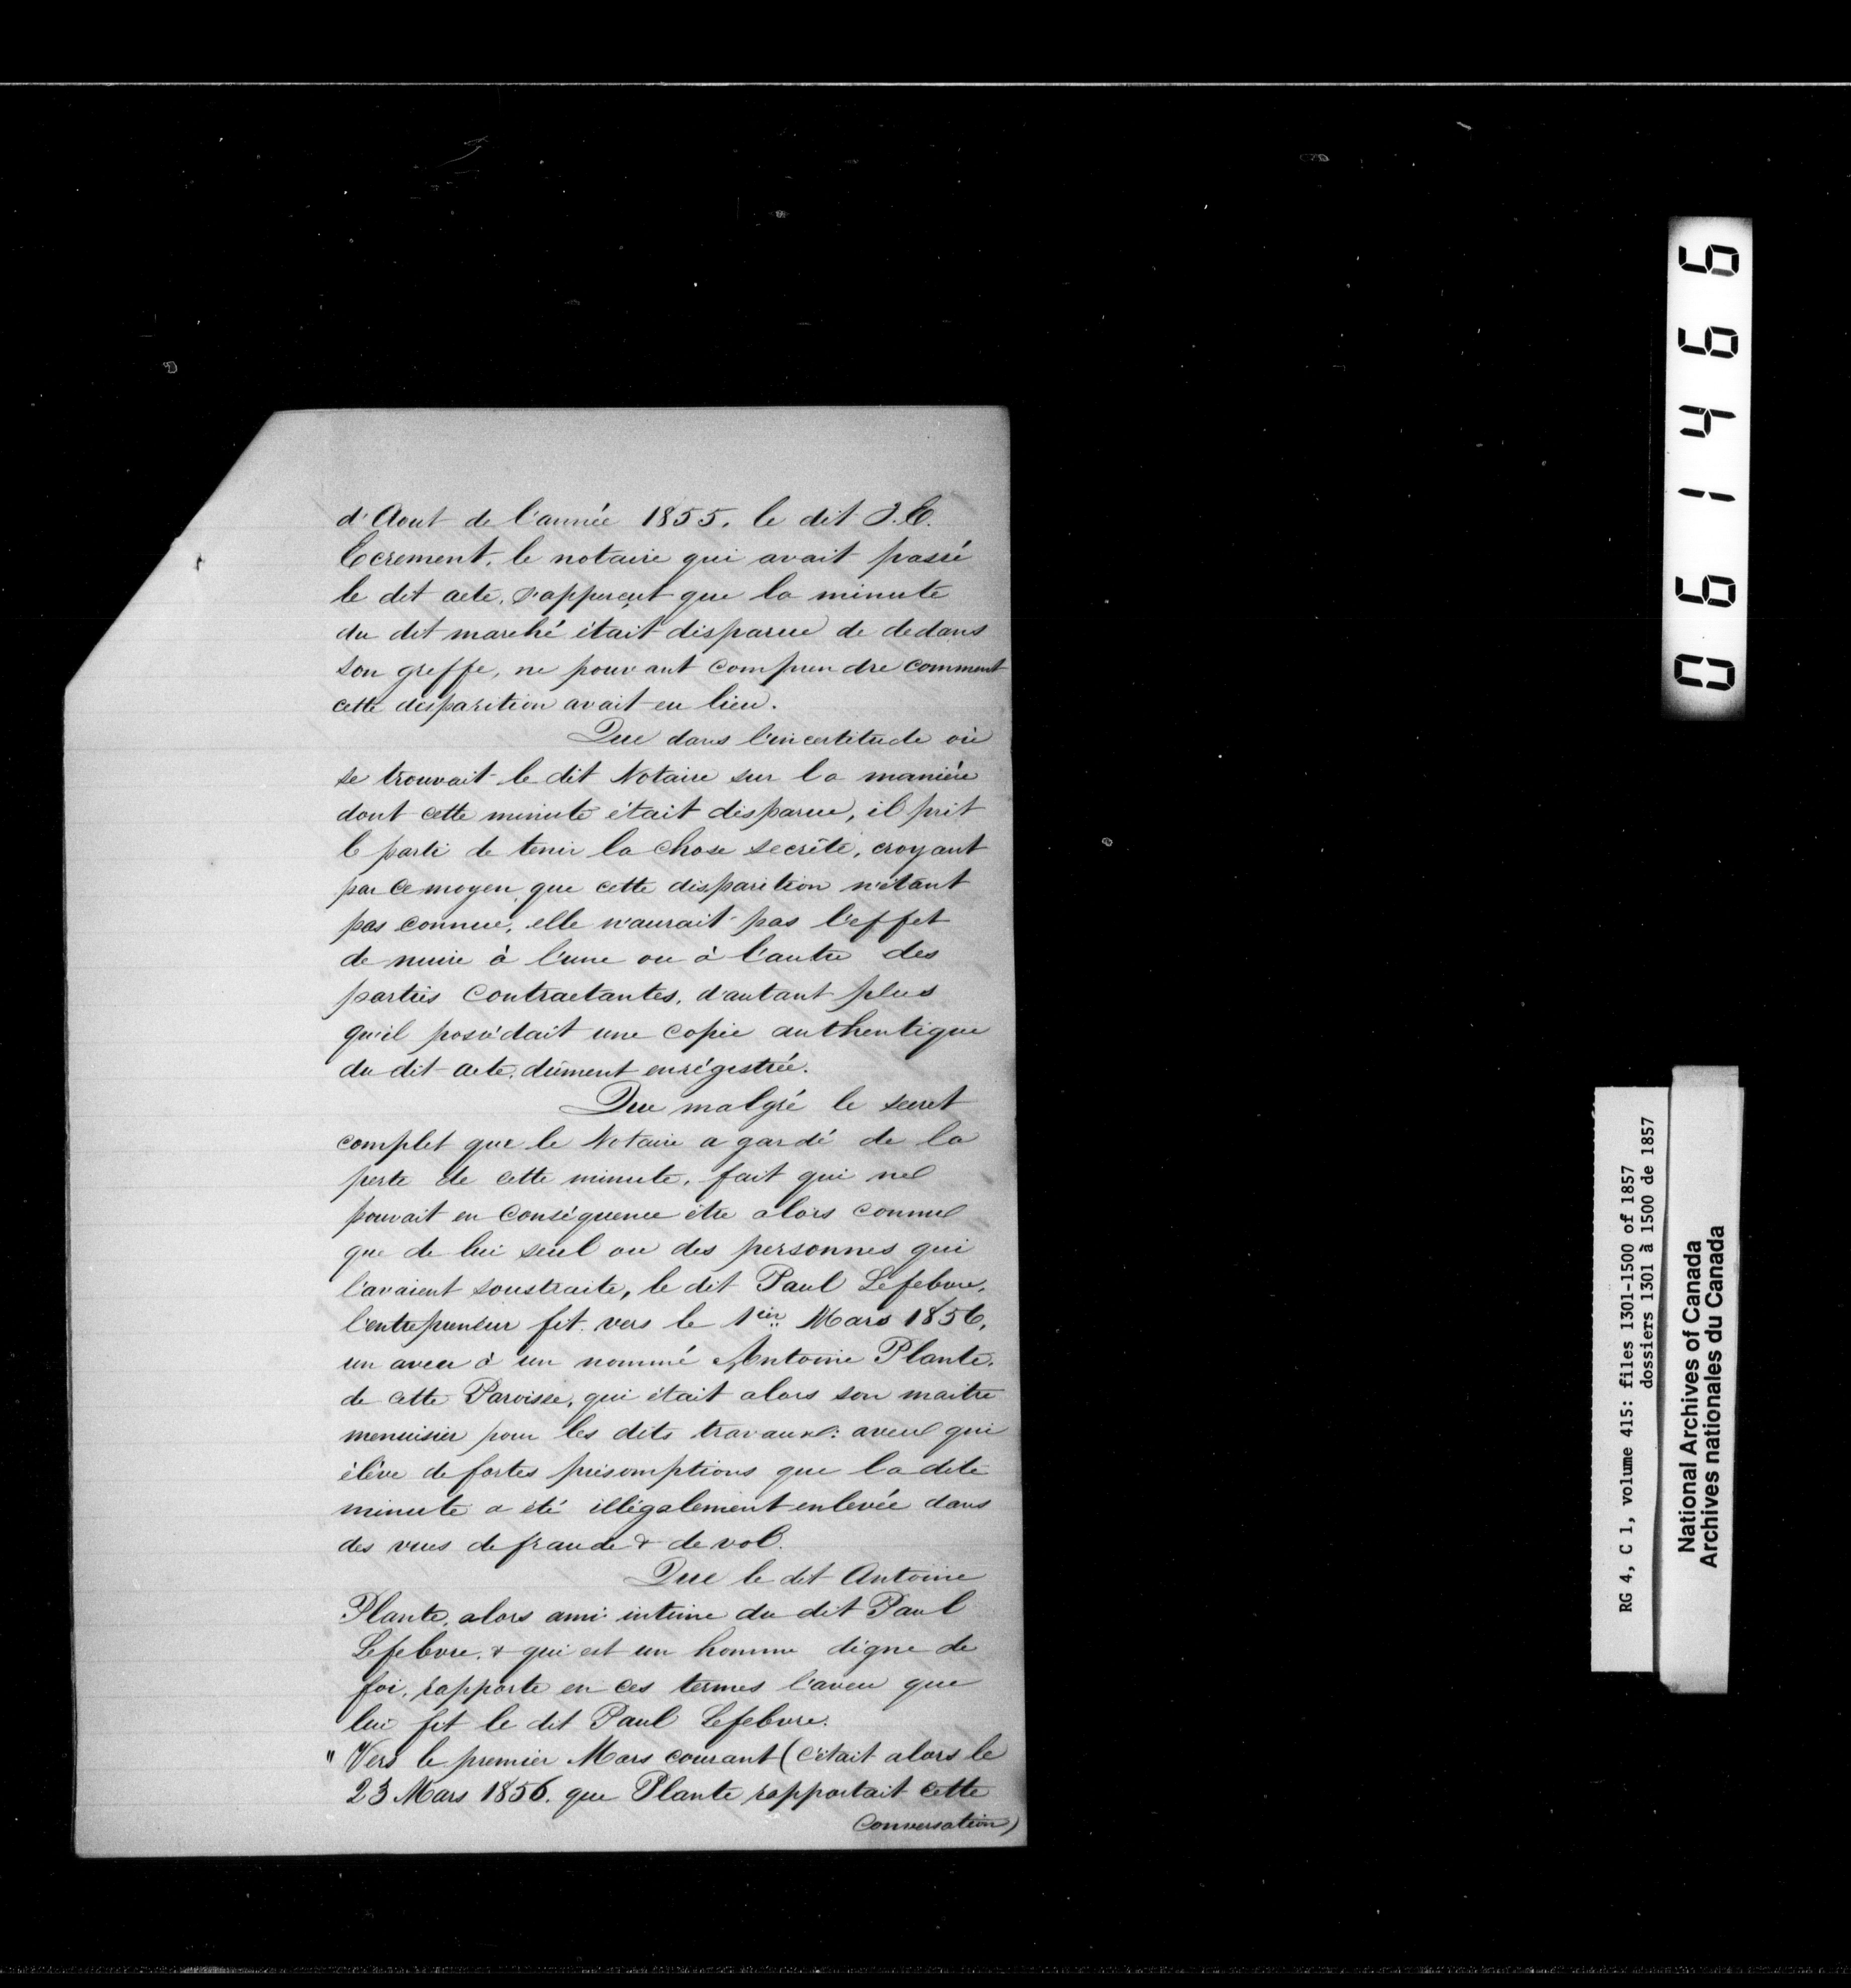 d'Aout de l'année 1855. le dit J.E.
Ecrement, le notaire qui avait passé
le dit acte, s'apperçut que la minute
du dit marché était disparue de dedans
son greffe, ne pouvant comprendre comment
cette disparition avait eu lieu.
Que dans l'incertitude où
se trouvait le dit Notaire sur la manière
dont cette minute était disparue, il prit
le parti de tenir la chose secrète, croyant
par ce moyen, que cette disparition n'étant
pas connue, elle n'aurait pas l'effet
de nuire à l'une ou à l'autre des
parties Contractantes, d'autant plus
qu'il possédait une Copie authentique
du dit acte, dûment enrégistrée.
Que malgré le secret
complet que le Notaire a gardé de la
perte de cette minute, fait qui ne
pouvait en Conséquence être alors connu
que de lui seul ou des personnes qui
l'avaient soustraite, le dit Paul Lefebvre,
l'entrepreneur fit vers le 1ier Mars 1856,
un aveu à un nommé Antoine Plante,
de cette Paroisse, qui était alors son maitre
menuisier pour les dits travaux: aveu qui
élève de fortes présomptions que la dite
minute a été illégalement enlevée dans
des vues de fraude & de vol.
Que le dit Antoine
Plante, alors ami intime du dit Paul
Lefebvre, & qui est un homme digne de
foi, rapporte en ces termes l'aveu que
lui fit le dit Paul Lefebvre.
" Vers le premier Mars courant (C'était alors le
23 Mars 1856. que Plante rapportait cette
Conversation)
061466
RG 4, C 1, volume 415: files 1301-1500 of 1857
dossiers 1301 à 1500 de 1857
National Archives of Canada
Archives nationales du Canada